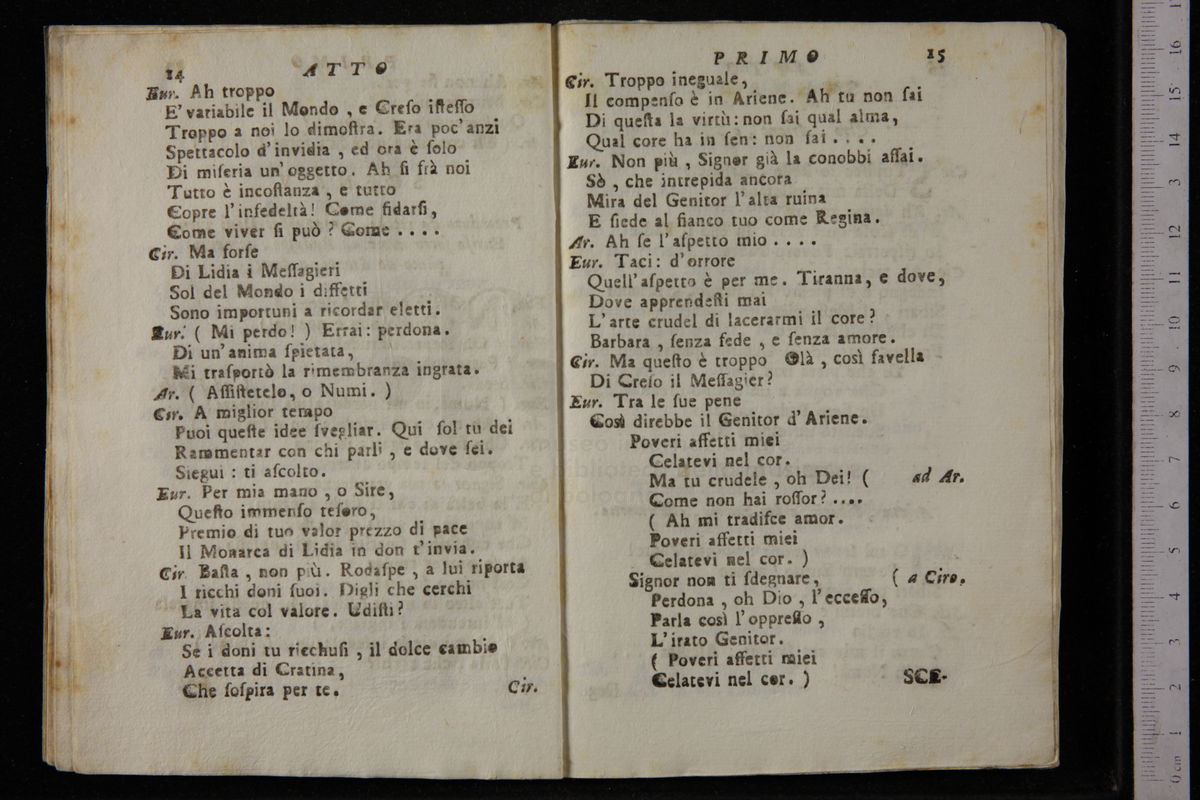 14 ATTO
Eur. Ah troppo
E' variabile il Mondo , e Creſo iſteſſo
Troppo a noi lo dimoſtra. Era poc'anzi
Spettacolo d'invidia , ed ora è ſolo
Di miſeria un'oggetto. Ah ſi frà noi
Tutto è incoſtanza , e tutto
Copre l'infedeltà! Come fidarſi,
Come viver ſi può ? Come . . . .
Cir. Ma forſe
Di Lidia i Meſſagieri
Sol del Mondo i diffetti
Sono importuni a ricordar eletti.
Eur. ( Mi perdo! ) Errai: perdona.
Di un'anima ſpietata,
Mi traſportò la rimembranza ingrata.
Ar. ( Aſſiſtetelo, o Numi. )
Cir. A miglior tempo
Puoi queſte idee ſvegliar. Qui ſol tu dei
Rammentar con chi parli , e dove ſei.
Siegui : ti aſcolto.
Eur. Per mia mano , o Sire,
Queſto immenſo teſoro,
Premio di tuo valor prezzo di pace
Il Monarca di Lidia in don t'invia.
Cir. Baſta , non più. Rodaſpe , a lui riporta
I ricchi doni ſuoi. Digli che cerchi
La vita col valore. Udiſti?
Eur. Aſcolta:
Se i doni tu ricchuſi , il dolce cambio
Accetta di Cratina,
Che ſoſpira per te.
Cir.
PRIMO 15
Cir. Troppo ineguale,
Il compenſo è in Ariene. Ah tu non ſai
Di queſta la virtù: non ſai qual alma,
Qual core ha in ſen: non ſai . . . .
Eur. Non più , Signor già la conobbi aſſai.
Sò , che intrepida ancora
Mira del Genitor l'alta ruina
E ſiede al fianco tuo come Regina.
Ar. Ah ſe l'aſpetto mio . . . .
Eur. Taci: d'orrore
Quell'aſpetto è per me. Tiranna, e dove,
Dove apprendeſti mai
L'arte crudel di lacerarmi il core?
Barbara , ſenza fede , e ſenza amore.
Cir. Ma queſto è troppo Olà , così favella
Di Creſo il Meſſagier?
Eur. Tra le ſue pene
Così direbbe il Genitor d'Ariene.
Poveri affetti miei
Celatevi nel cor.
Ma tu crudele , oh Dei! ( ad Ar.
Come non hai roſſor? ....
( Ah mi tradiſce amor.
Poveri affetti miei
Celatevi nel cor. )
Signor non ti ſdegnare, ( a Ciro.
Perdona , oh Dio , l'ecceſſo,
Parla così l'oppreſſo ,
L'irato Genitor.
( Poveri affetti miei
Celatevi nel cor. )
SCE-